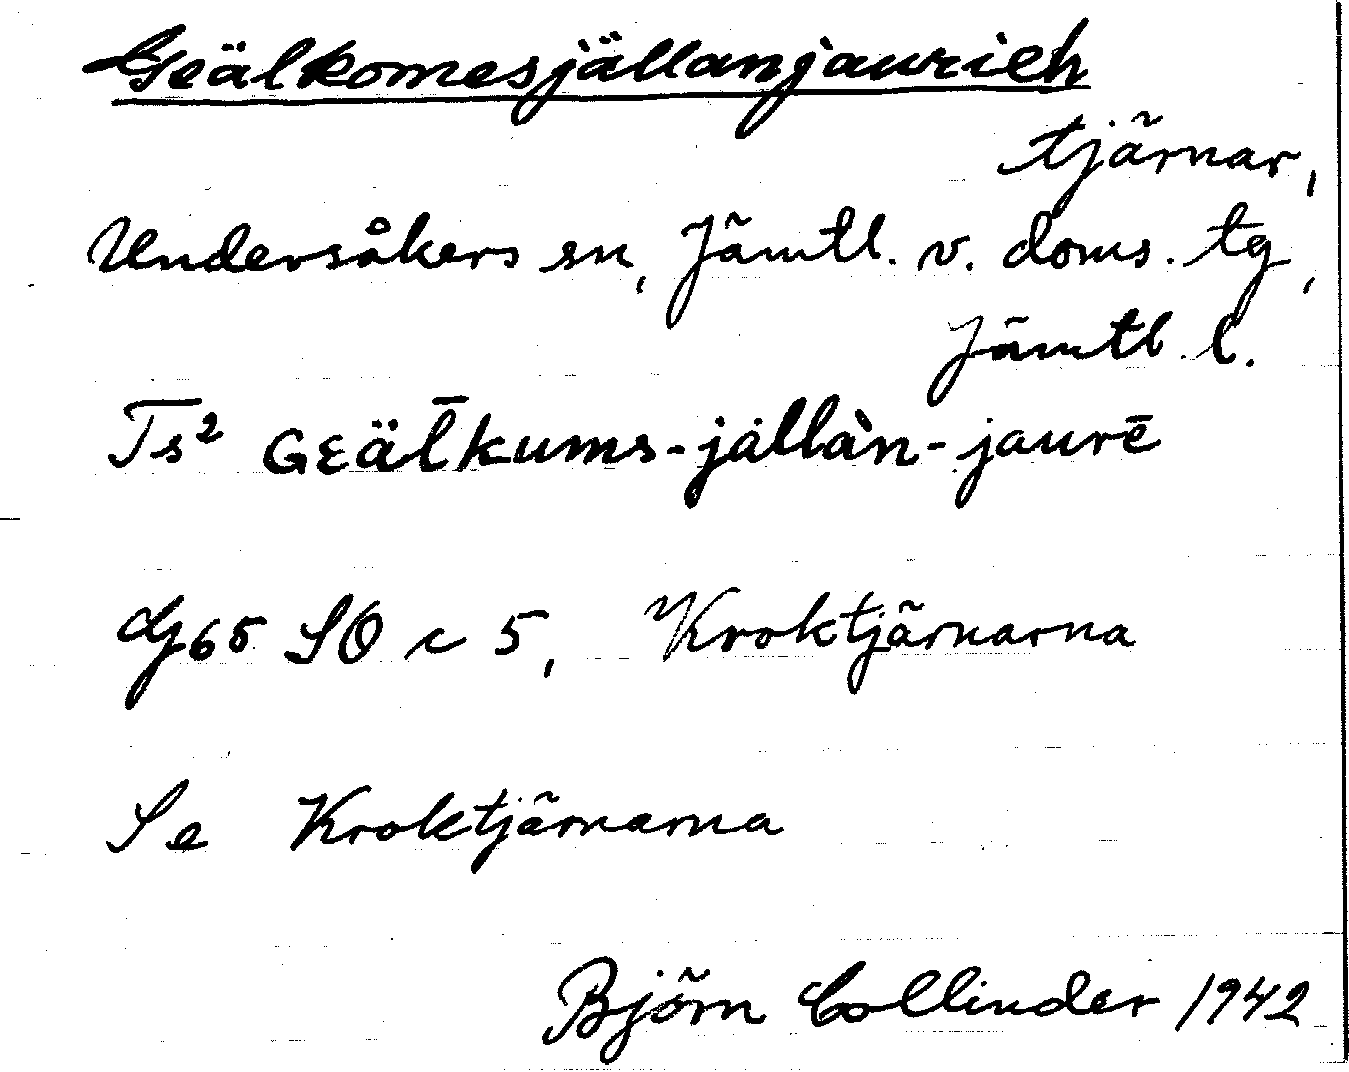 Geälkomesjällanjaurieh
tjärnar,
Undersåkers sn, Jämtl. v. doms. tg,
Jämtl. l.
Ts² Gεäl̄kums-jallàn-jaurē
Gg65 SO c 5, Kroktjärnarna
Se Kroktjärnarna
Björn Collinder 1942